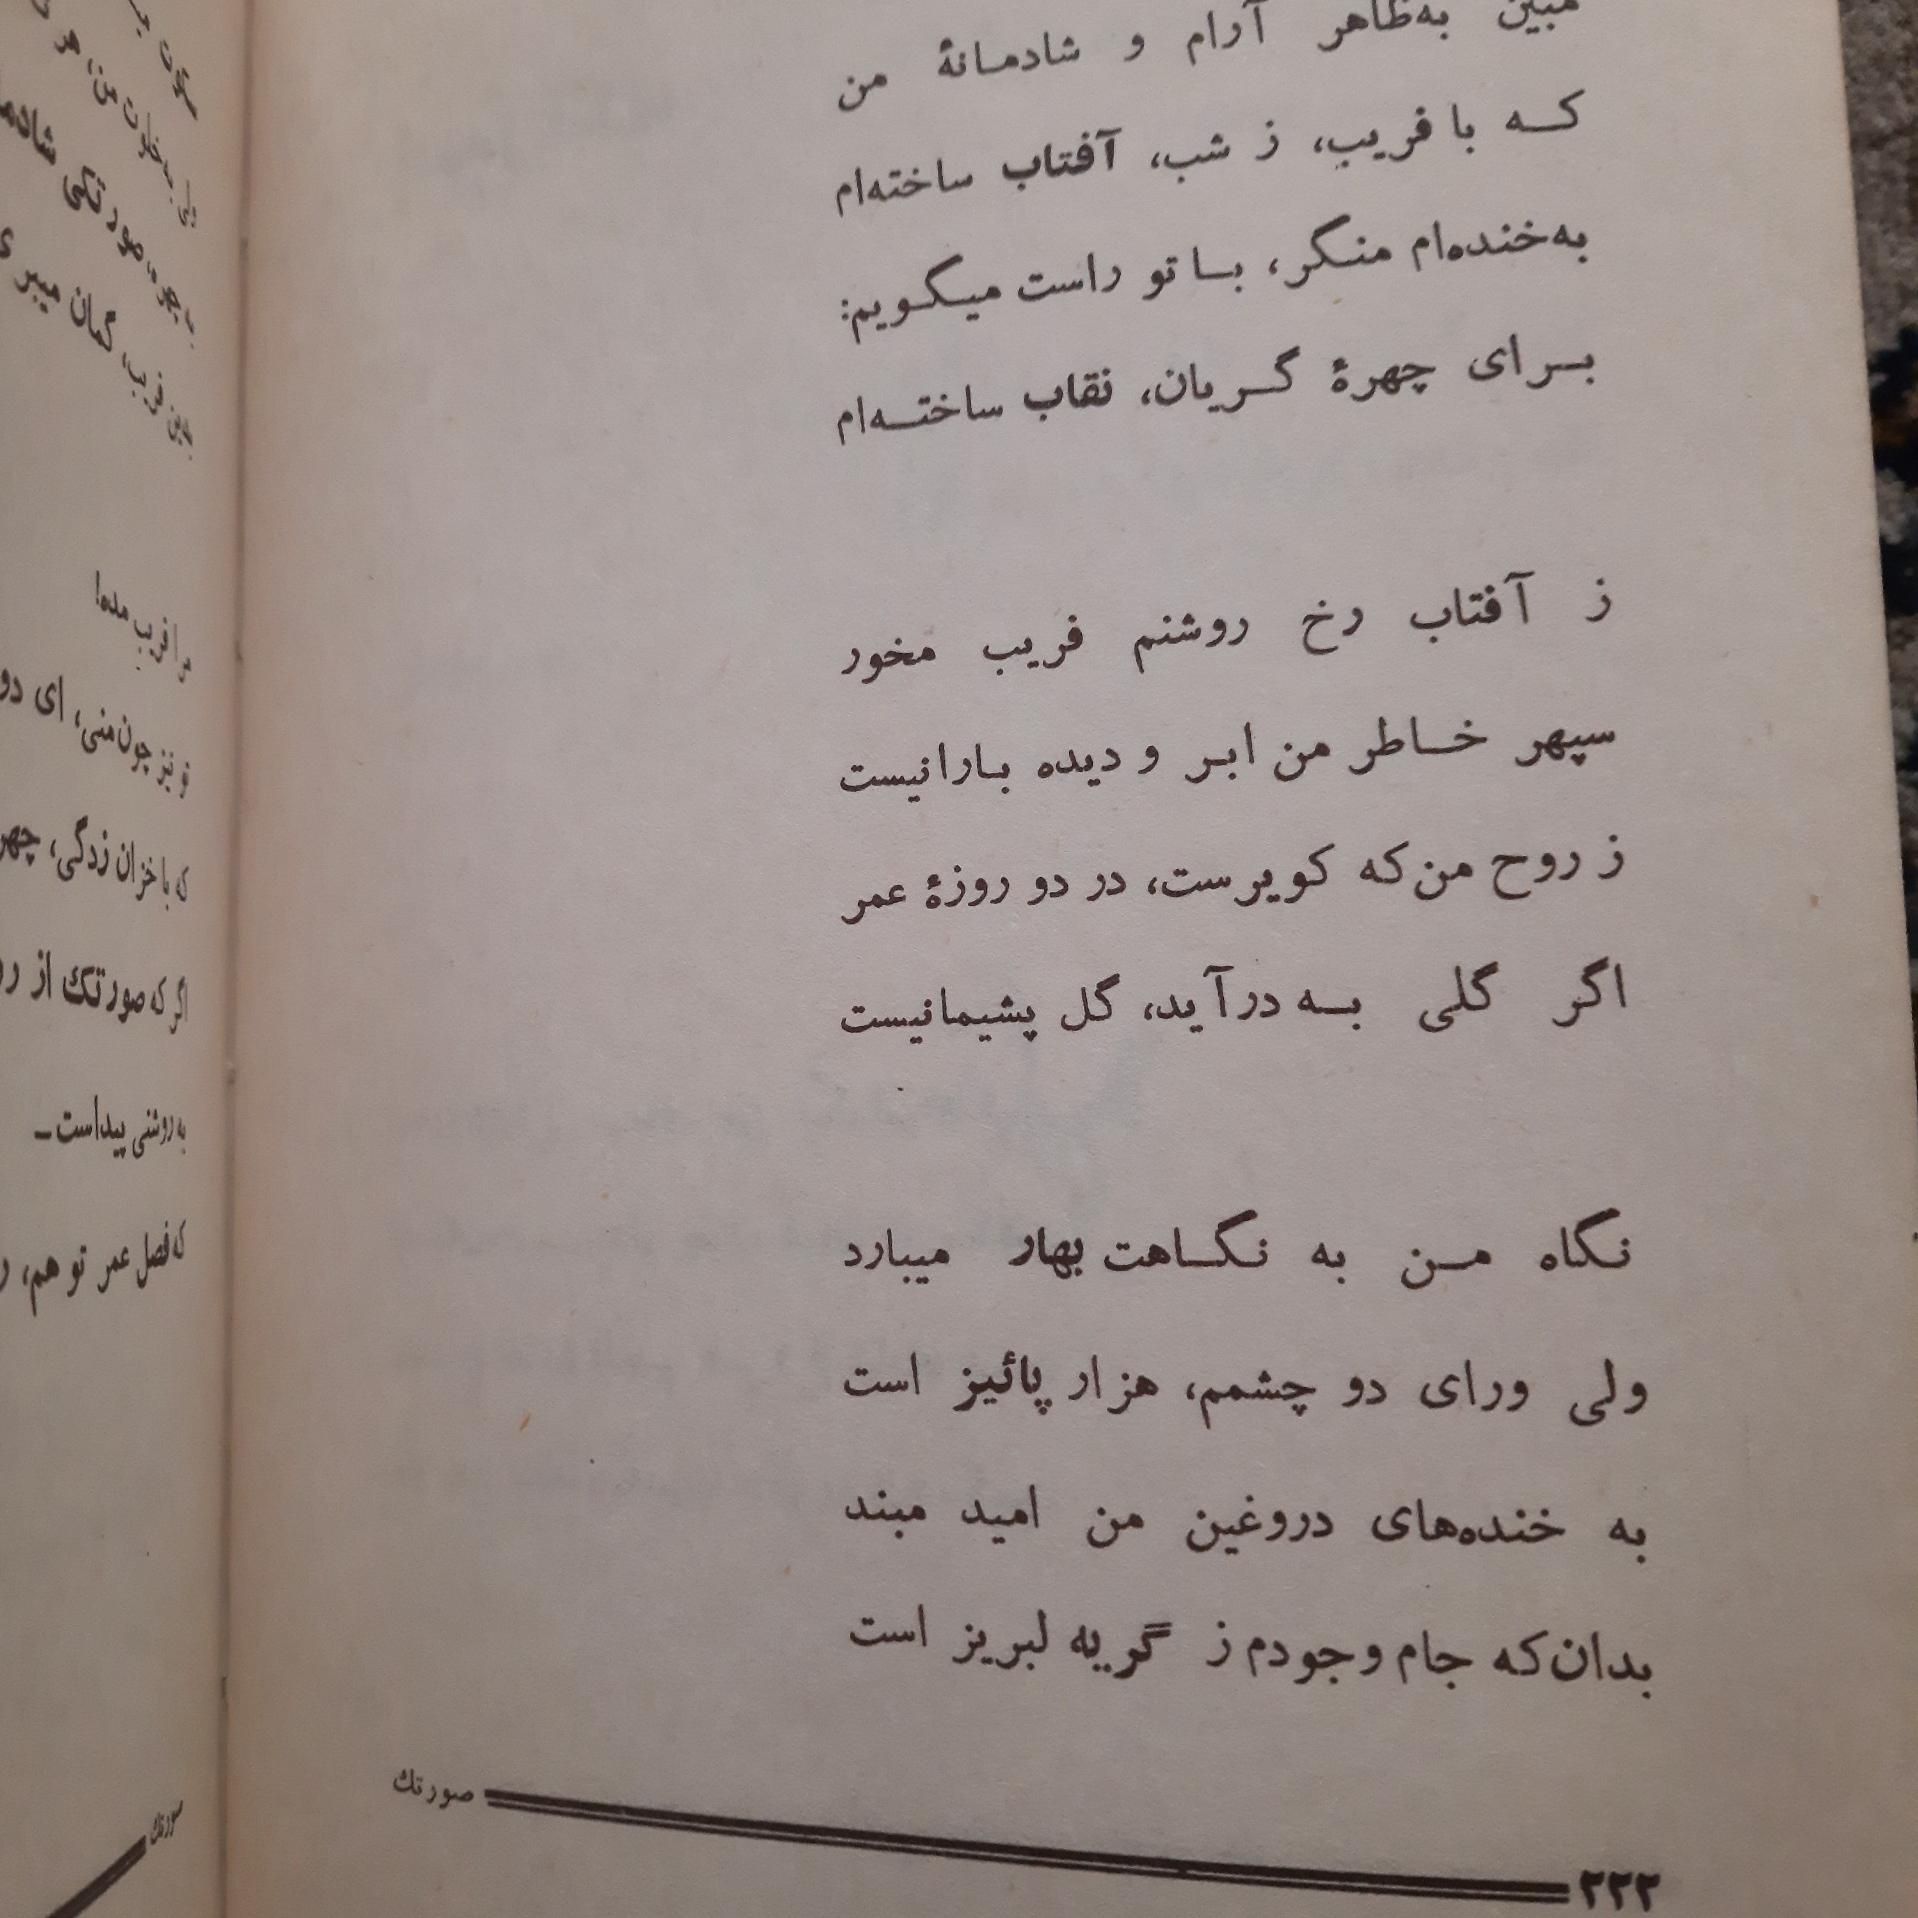 مبین به‌ظاهر آرام و شادمانهٔ من
که با فریب، ز شب، آفتاب ساخته‌ام
به‌خنده‌ام منگر، با تو راست میگویم:
برای چهرهٔ گریان، نقاب ساخته‌ام
ز آفتاب رخ روشنم فریب مخور
سپهر خاطر من ابر و دیده بارانیست
ز روح من که کویرست، در دو روزهٔ عمر
اگر گلی به درآید، گل پشیمانیست
نگاه من به نگاهت بهار میبارد
ولی ورای دو چشمم، هزار پائیز است
به خنده‌های دروغین من امید مبند
بدان که جام وجودم ز گریه لبریز است
صورتک
۲۲۲
سکوت
ولی به خلوت من، هر
به چهره، صورتکی
بدین فریب، گمان میبری
مرا فریب مده!
تو نیز چون منی، ای
که با خزان زدگی،
اگر که صورتک از
به روشنی پیداست ـ
که فصل عمر تو هم،
صورتک